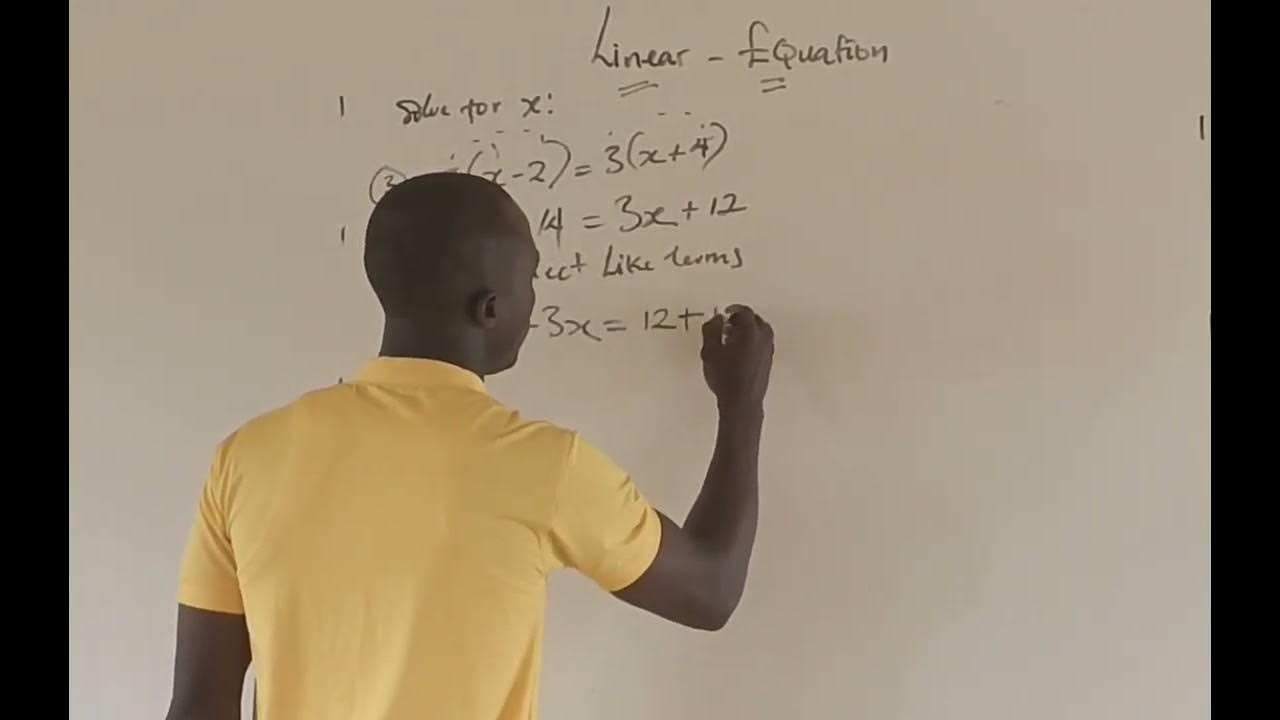 Linear - Equation
1 Solve for x:
(x-2) = 3(x+4)
14 = 3x+12
Like terms
-3x = 12+